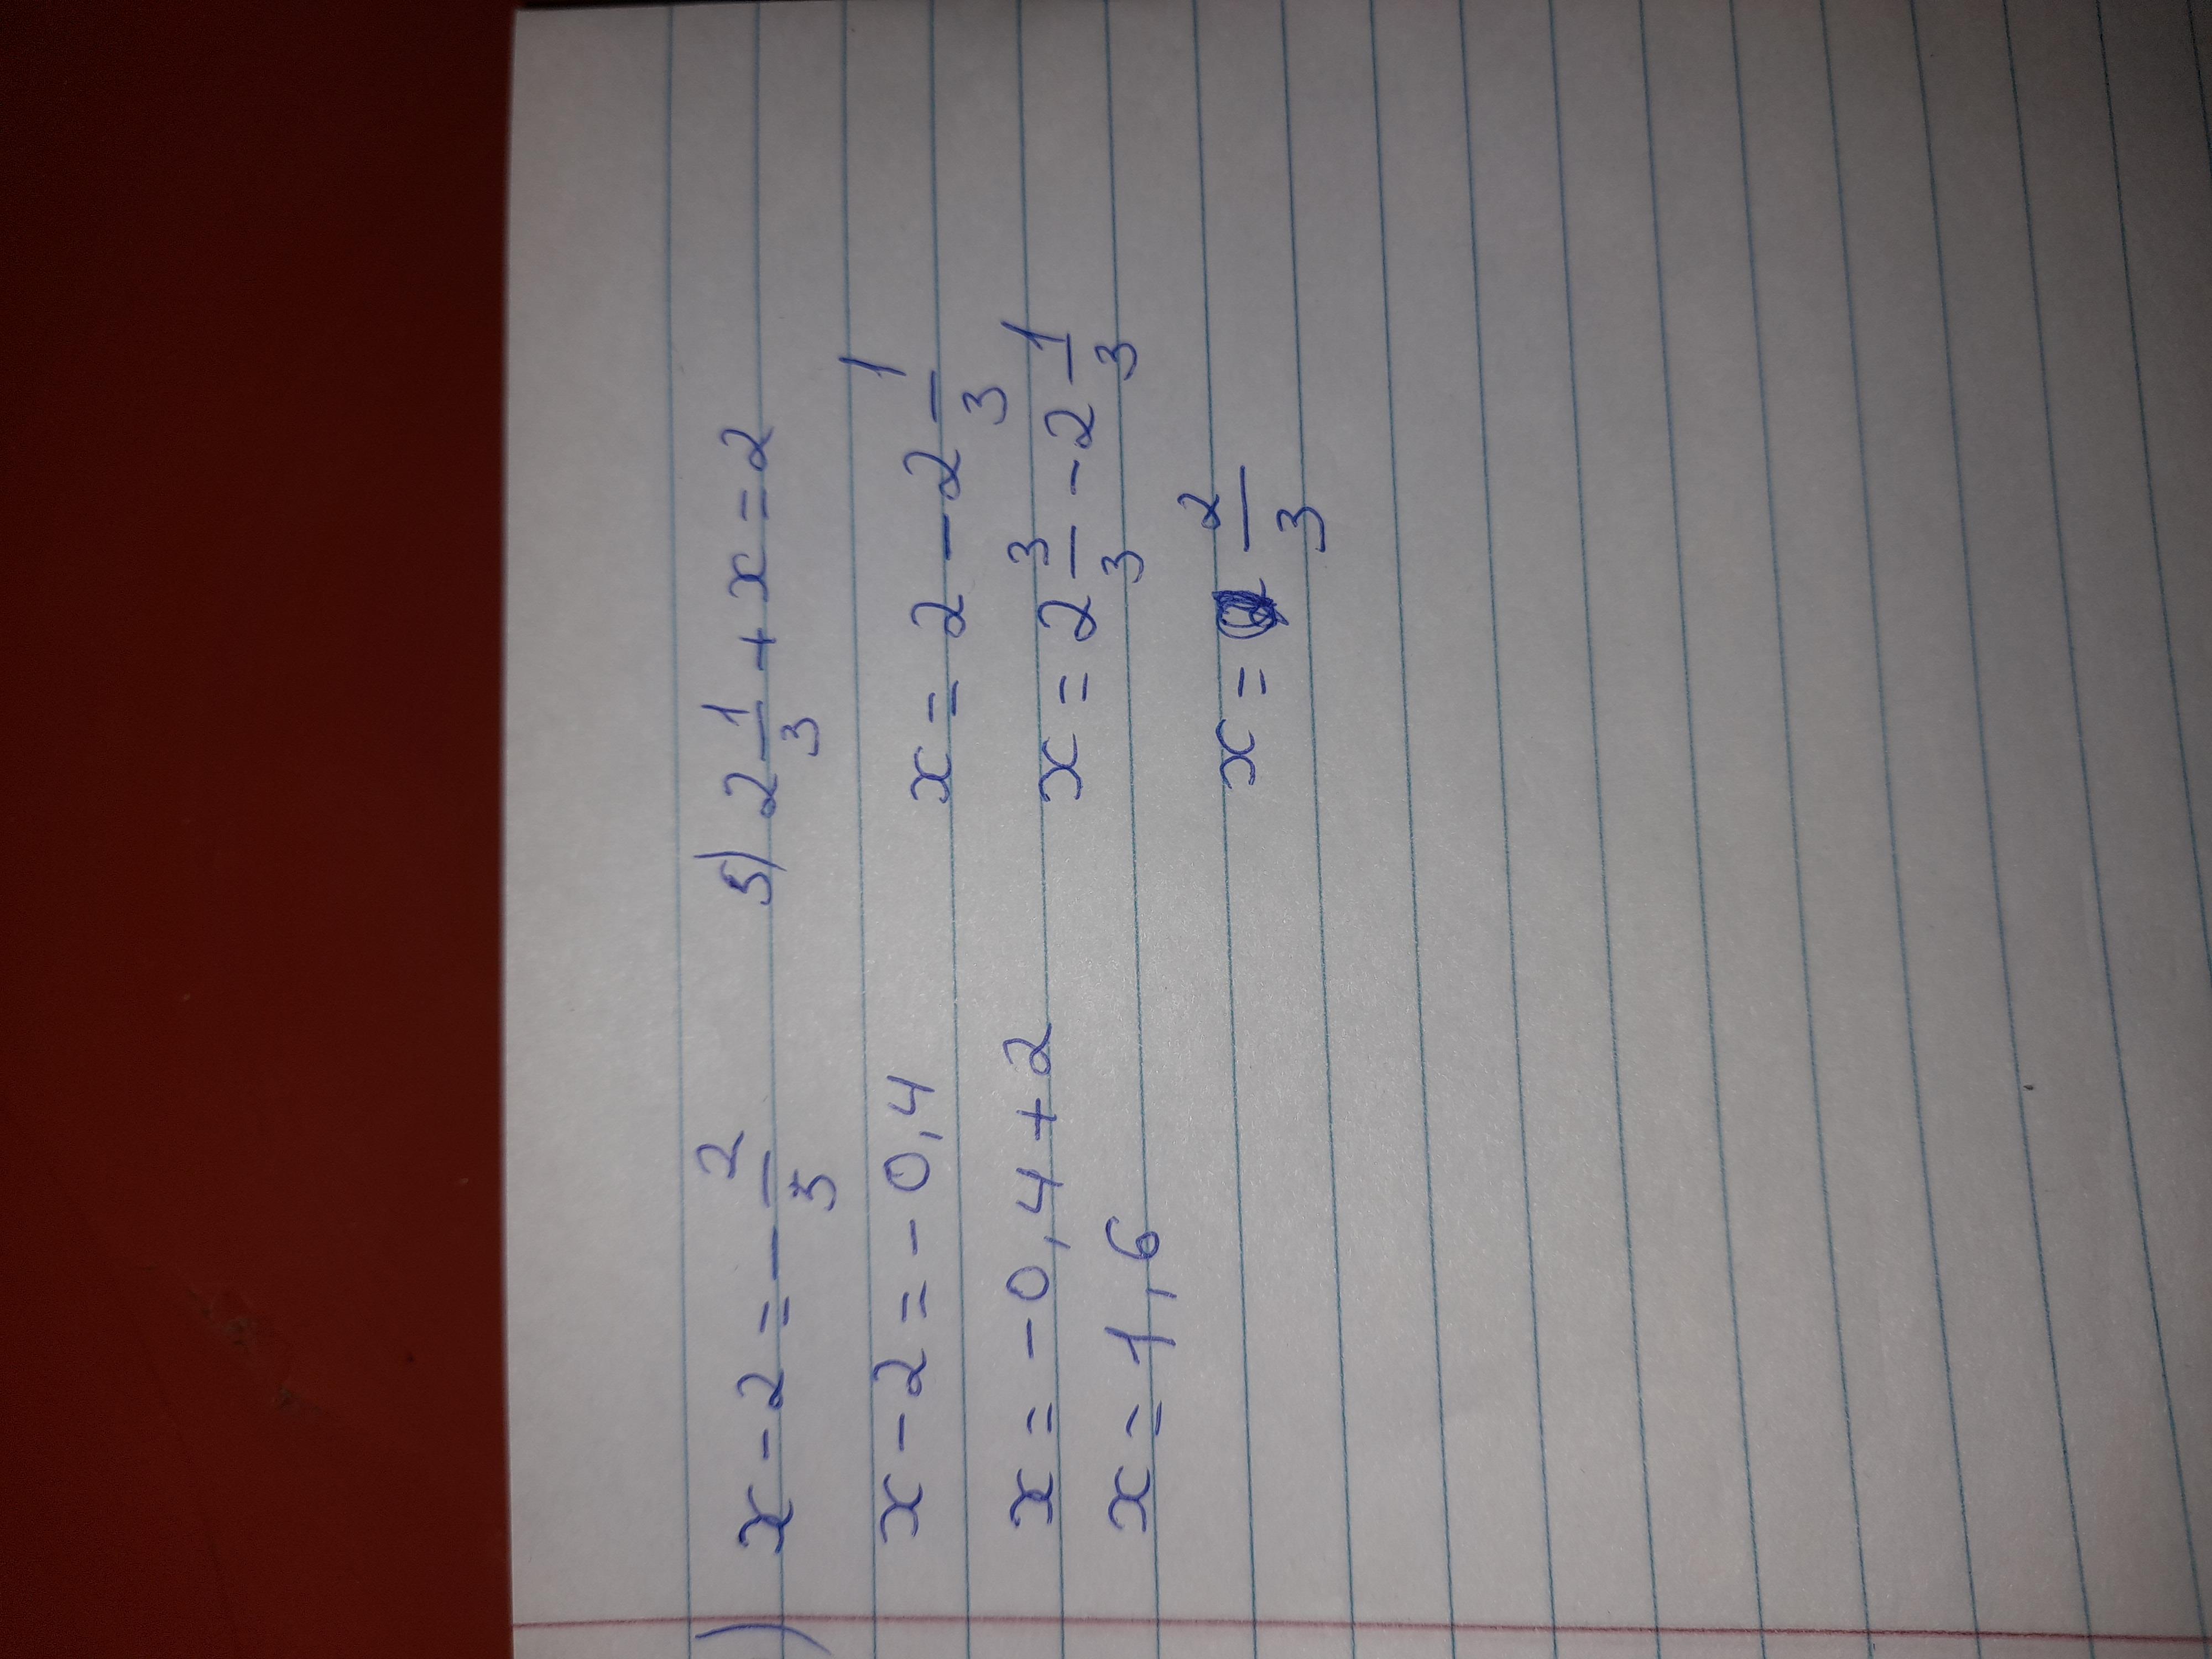 ) x - 2 = - 2/5
x - 2 = - 0,4
x = - 0,4 + 2
x = 1,6
5) 2 1/3 + x = 2
x = 2 - 2 1/3
x = 2 3/3 - 2 1/3
x = 2/3